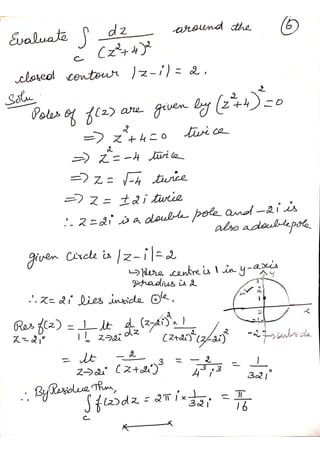 Evaluate ∫_C dz/(z²+4)² around the ⑥
closed contour |z-i| = 2.
Solu
Poles of f(z) are given by (z²+4)² = 0
=> z²+4 = 0 twice
=> z² = -4 twice
=> z = √-4 twice
=> z = ±2i twice
∴ z = 2i is a double pole and -2i is
also a double pole
given Circle is |z-i| = 2
↳ Here centre is 1 in y-axis
& radius is 2
∴ z = 2i lies inside ⊙le.
Res f(z) = 1/1! lt d/dz (z-2i)² × 1/((z+2i)²(z-2i)²)
z=2i z→2i
= lt -2/(z+2i)³ = -2/(4³i³) = 1/32i
z→2i
∴ By Residue Thm,
∫_C f(z)dz = 2πi × 1/32i = π/16